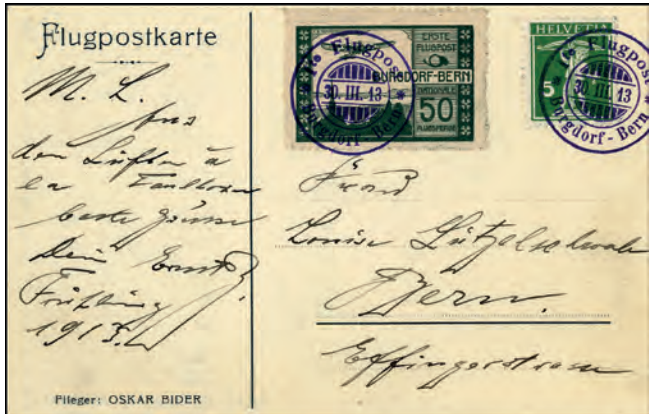 Flugpostkarte
M. L.
Aus
den Lüften à
la
beste Grüsse
Dein Ernst.
Frühling
1913.
Flieger: OSKAR BIDER
ERSTE
FLUGPOST
BURGDORF-BERN
NATIONALE
50
FLUGSPENDE
1te Flugpost
30. III. 13
Burgdorf - Bern
HELVETIA
5
1te Flugpost
30. III. 13
Burgdorf - Bern
Louise
Bern.
Effingerstrasse